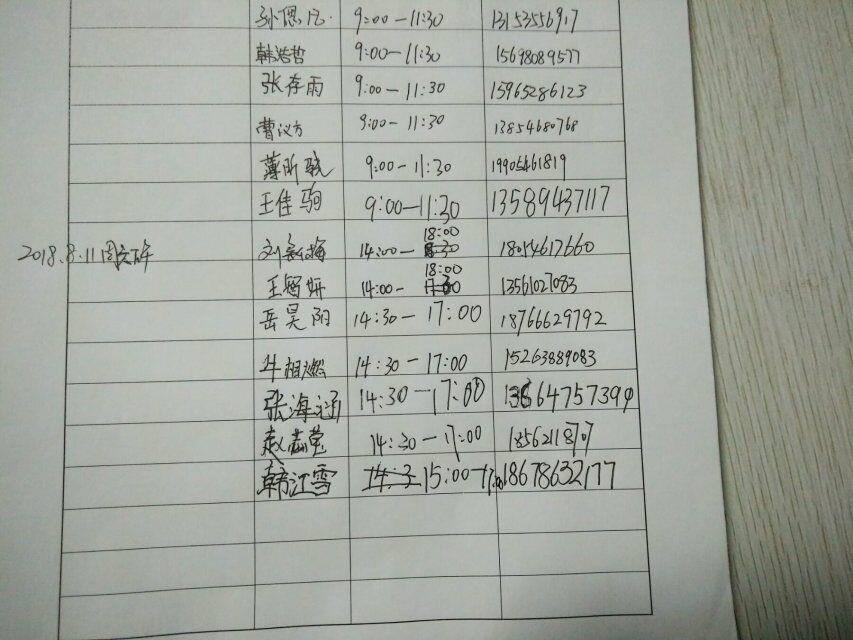 9:00-11:30 13153556917
韩浩哲 9:00-11:30 15698089577
张存雨 9:00-11:30 15965286123
曹议方 9:00-11:30 13854680768
薄昕 9:00-11:30 19905461819
王佳驹 9:00-11:30 13589437117
18:00
2018.8.11周六下午 刘 梅 14:00- 18054617660
18:00
王 妍 14:00- 13561027083
岳昊阳 14:30-17:00 18766629792
牛相燃 14:30-17:00 15263889083
张海涵 14:30-17:00
赵 莹 14:30-17:00 18562118707
韩江雪 15:00-17:00 18678632177